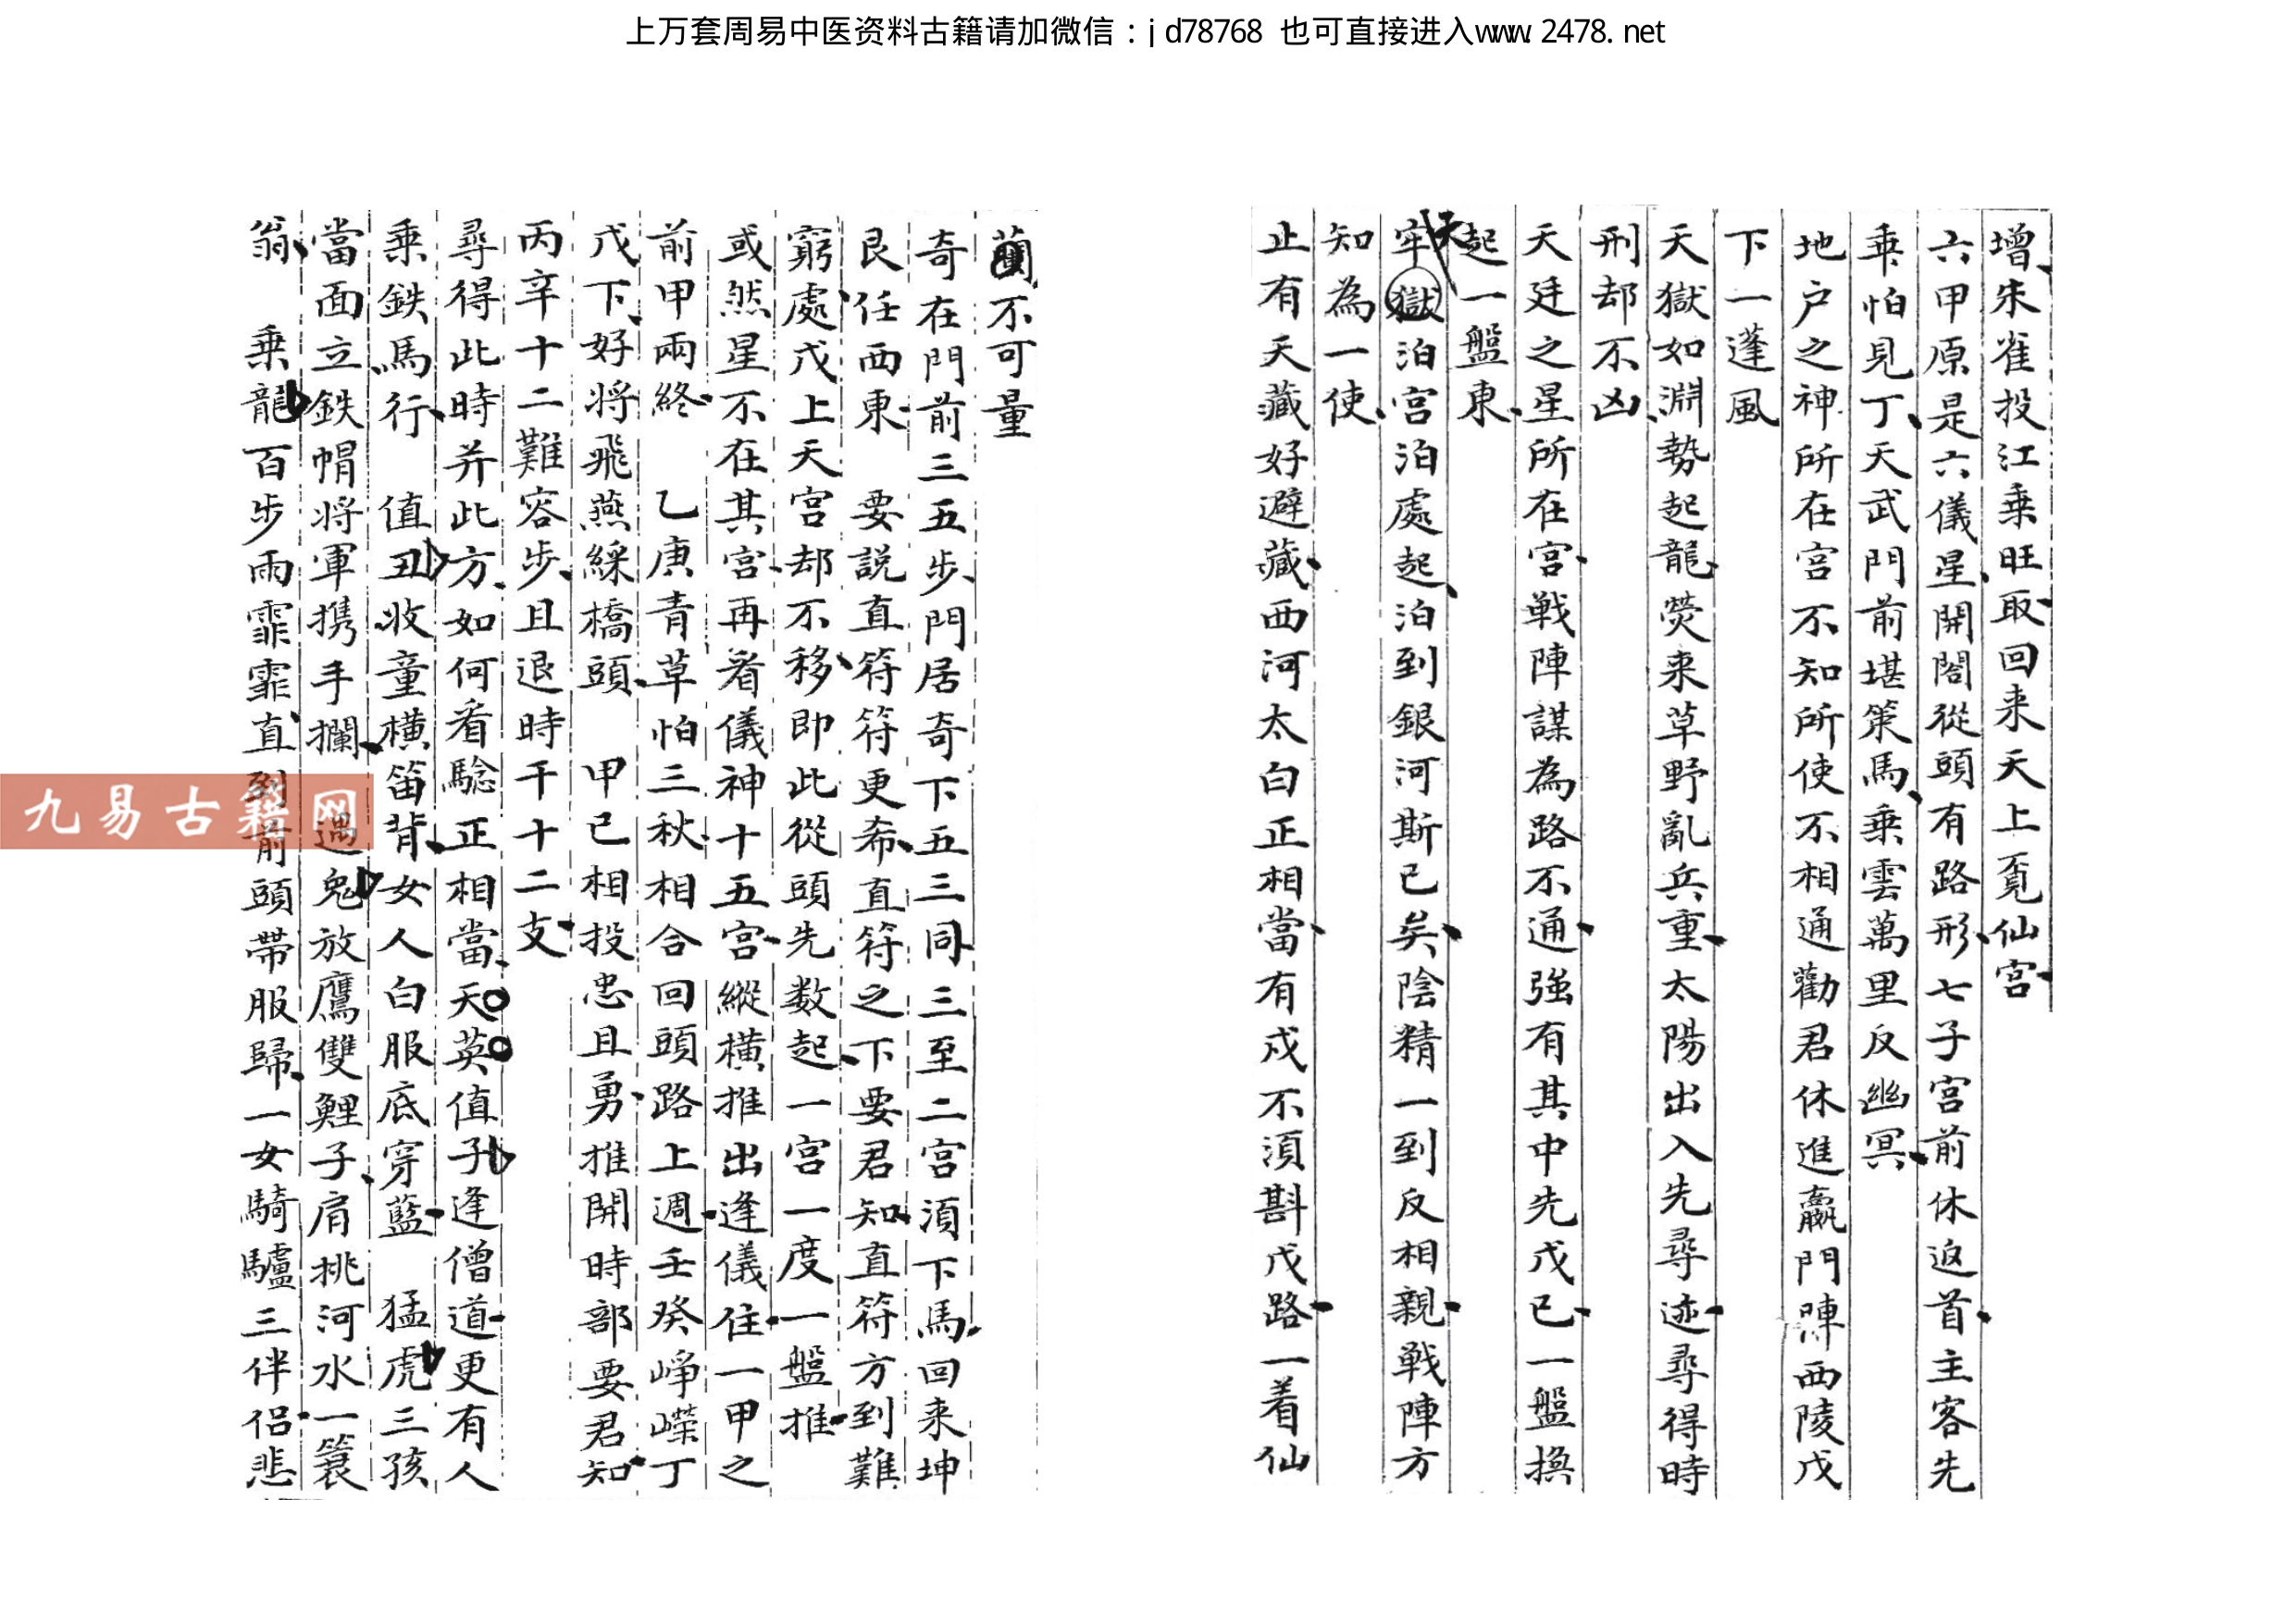 上万套周易中医资料古籍请加微信：jd78768 也可直接进入www.2478.net
增朱雀投江乗旺取回来天上覔仙宫
六甲原是六儀星開閣從頭有路形七子宫前休返首主客先
乗怕見丁天武門前堪策馬乗雲萬里反幽冥
地户之神所在宫不知所使不相通勸君休進嬴門陣西陵戊
下一蓬風
天獄如淵勢起龍熒来草野亂兵重太陽出入先尋迹尋得時
刑却不凶
天廷之星所在宫戦陣謀為路不通強有其中先戊已一盤换
起一盤東
天牢獄泊宫泊處起泊到銀河斯已矣陰精一到反相親戦陣方
知為一使
止有天藏好避藏西河太白正相當有戍不須斟戊路一着仙
不可量
奇在門前三五步門居奇下五三同三至二宫須下馬回来坤
艮任西東 要説直符符更希直符之下要君知直符方到難
窮處戊上天宫却不移即此從頭先数起一宫一度一盤推
或然星不在其宫再看儀神十五宫縱横推出逢儀住一甲之
前甲兩終 乙庚青草怕三秋相合回頭路上週壬癸崢嶸丁
戊下好将飛燕綵橋頭 甲已相投忠且勇推開時部要君知
丙辛十二難容步且退時干十二支
尋得此時并此方如何看騐正相當天英值子逢僧道更有人
乗鉄馬行 值丑收童横笛背女人白服底穿藍 猛虎三孩
當面立鉄帽将軍携手攔 遇兔放鷹雙鯉子肩挑河水一簑
翁 乗龍百步雨霏霏直到前頭帯服歸一女騎驢三伴侣悲
九易古籍网